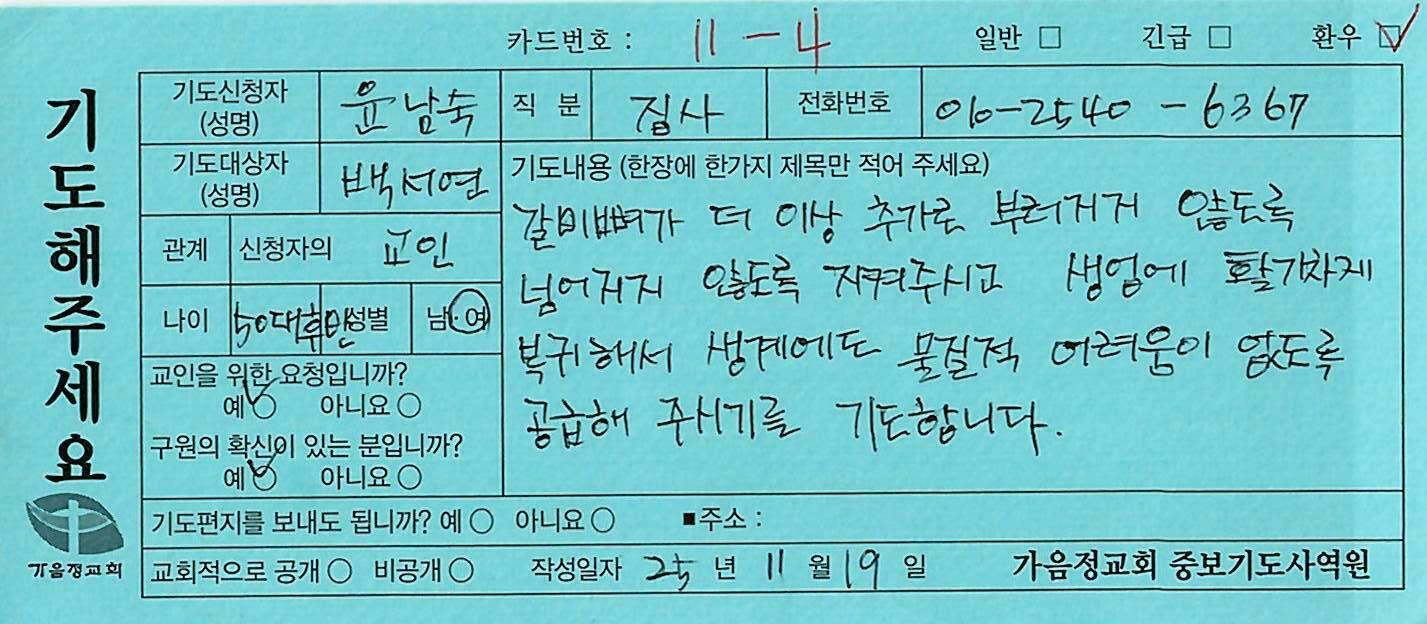 카드번호 : 11-4 일반 □ 긴급 □ 환우 ☑
기도해주세요
기도신청자 (성명) 윤남숙 직 분 집사 전화번호 010-2540-6367
기도대상자 (성명) 백서연
관계 신청자의 교인
나이 50대후반 성별 남·여
교인을 위한 요청입니까?
예 ○ 아니요 ○
구원의 확신이 있는 분입니까?
예 ○ 아니요 ○
기도내용 (한장에 한가지 제목만 적어 주세요)
갈비뼈가 더 이상 추가로 부러지지 않도록
넘어지지 않도록 지켜주시고 생업에 활기차게
복귀해서 생계에도 물질적 어려움이 없도록
공급해 주시기를 기도합니다.
기도편지를 보내도 됩니까? 예 ○ 아니요 ○ ■주소 :
교회적으로 공개 ○ 비공개 ○ 작성일자 25 년 11 월 19 일 가음정교회 중보기도사역원
가음정교회